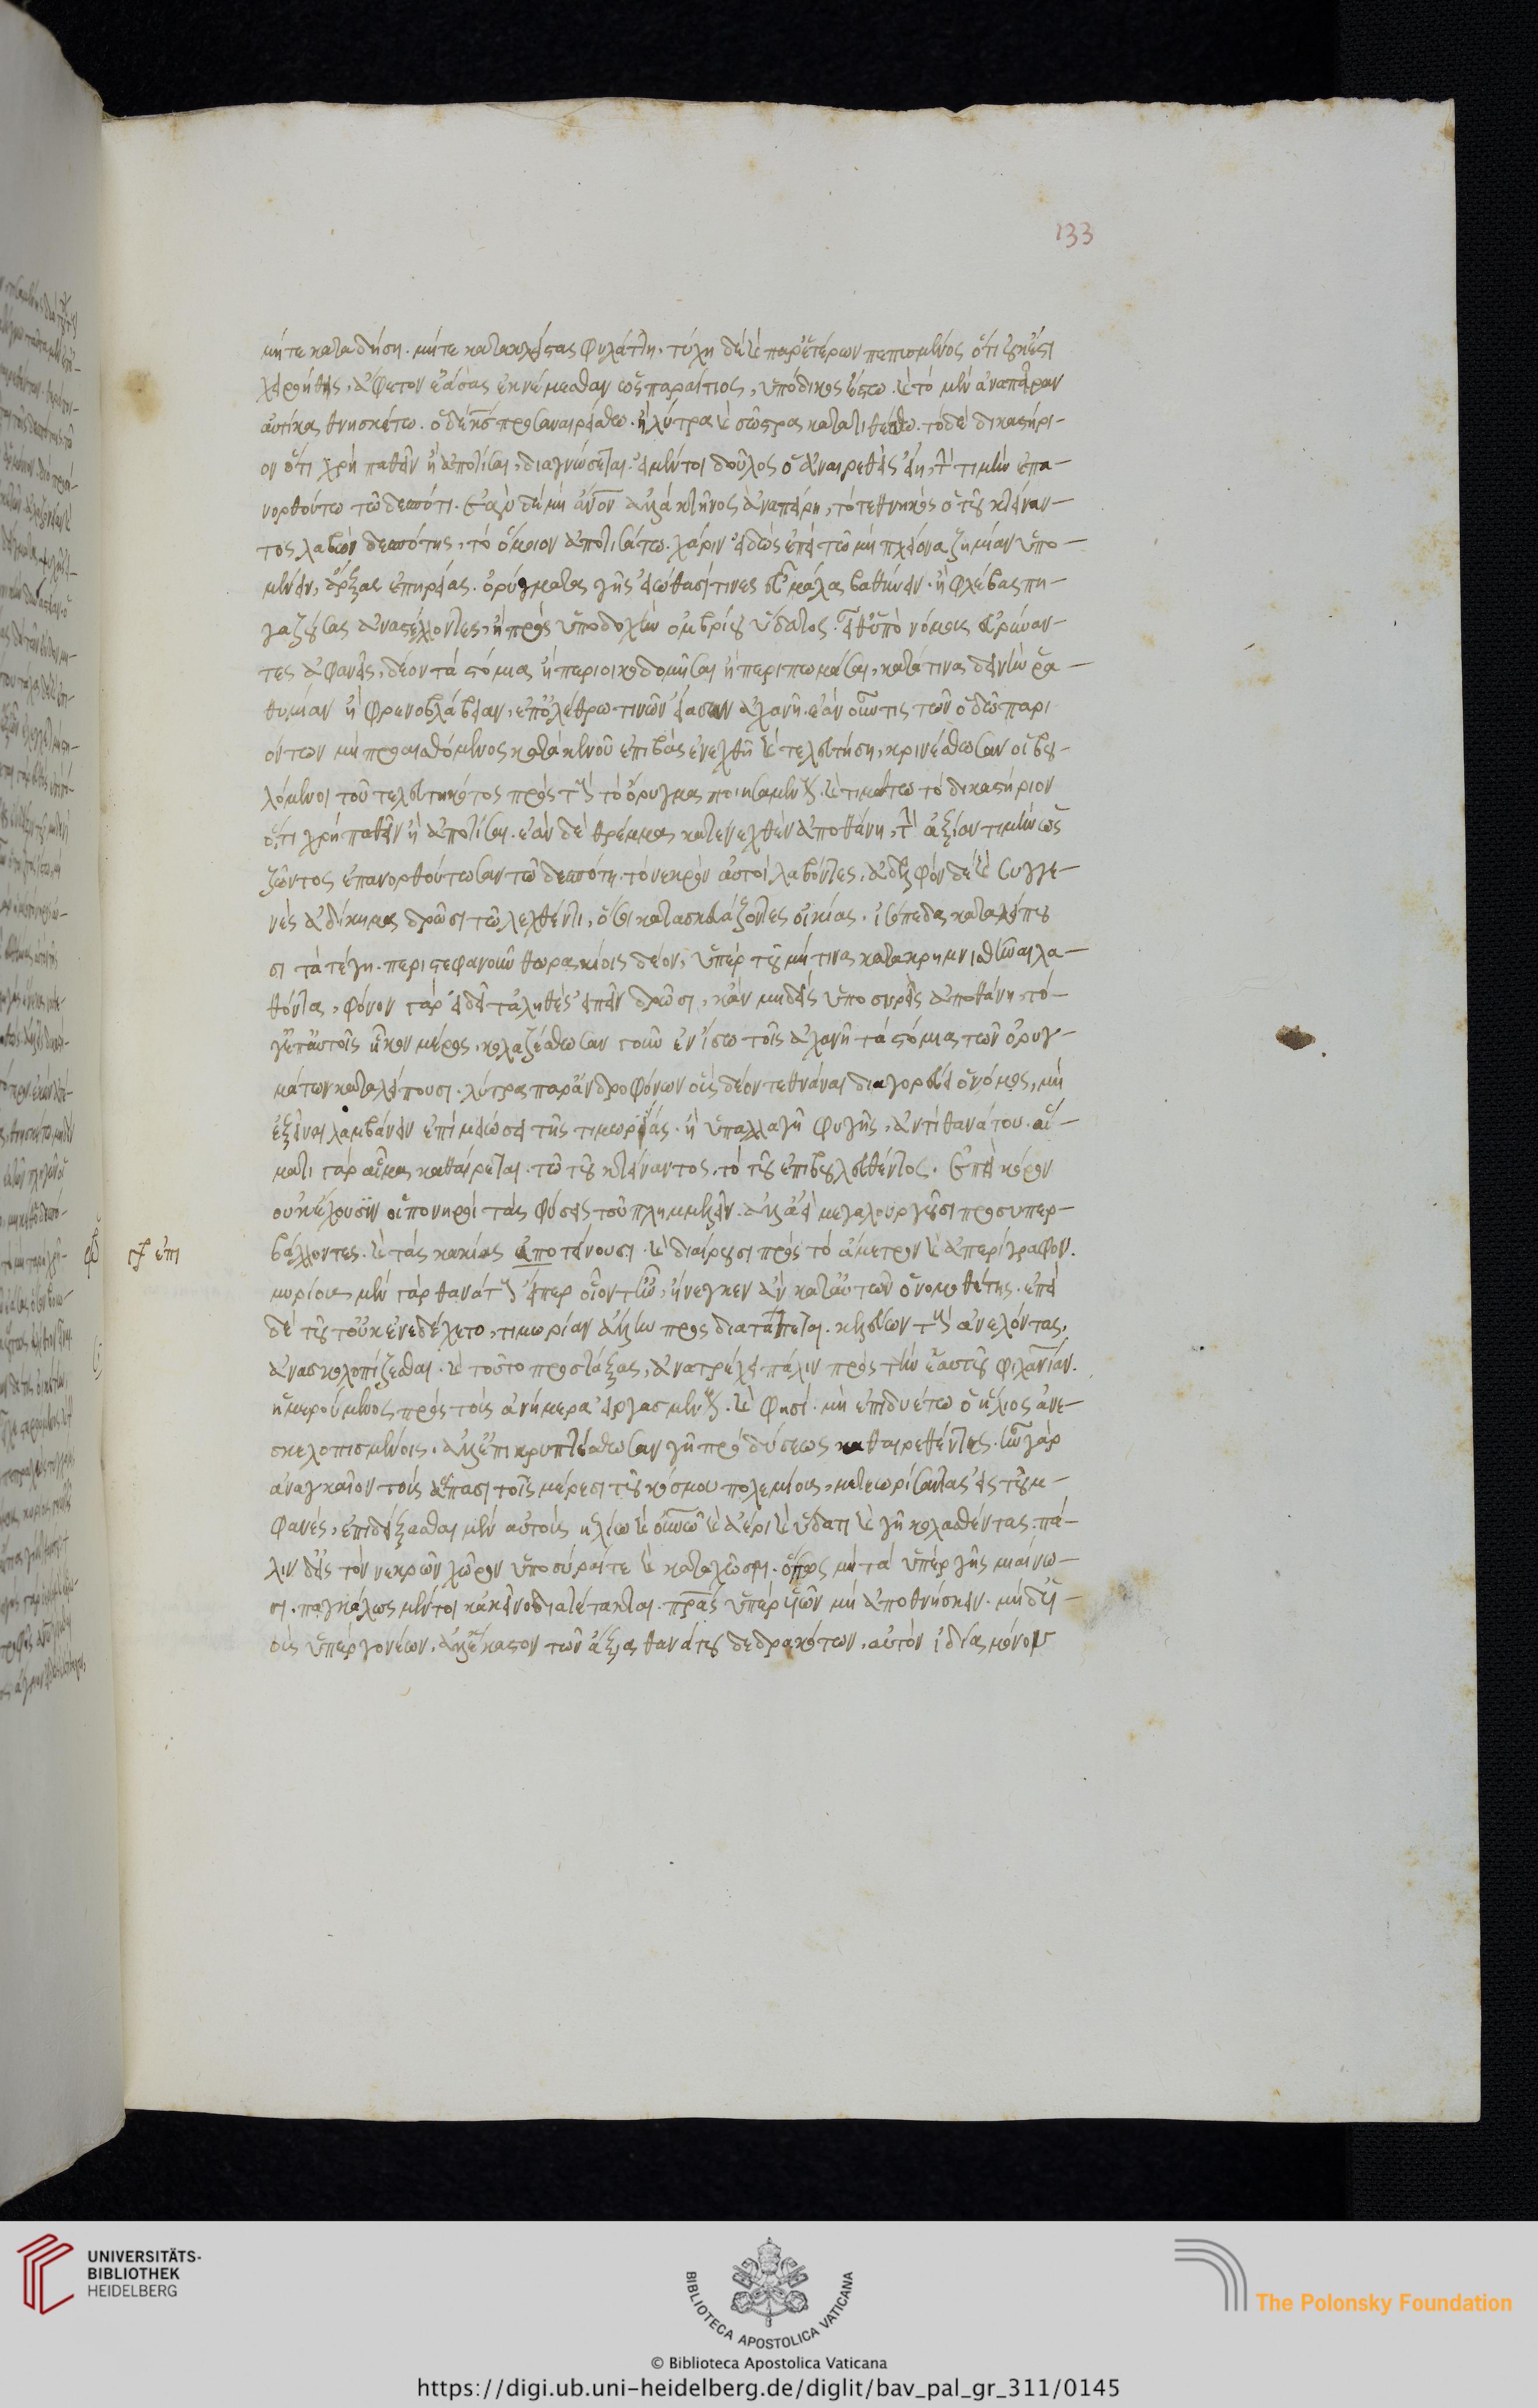 133
μήτε καταδήση. μήτε κατακλείσας φυλάττη, τύχη δὲ καὶ παρ' ἑτέρων πεπισμένος ὅτι οὐκ ἔστι
χειροήθης, ἄφετον ἐάσας ἐκνέμεσθαι ὡς παραίτιος, ὑπόδικος ἔστω. καὶ τὸ μὲν ἀναπεῖραν
αὐτίκα θνησκέτω. ὁ δὲ κς προσαναιρείσθω. ἢ λύτρα καὶ σῶστρα κατατιθέσθω. τὸ δὲ δικαστήρι-
ον ὅτι χρὴ παθεῖν ἢ ἀποτίσαι, διαγνώσεται. εἰ μέντοι δοῦλος ὁ ἀναιρεθεὶς εἴη, τὴν τιμὴν ἐπα-
νορθούτω τῶ δεσπότι. ἐὰν δὲ μὴ ἄνον ἀλλὰ κτῆνος ἀναπείρη, τὸ τεθνηκὸς ὁ τοῦ κτείναν-
τος λαβὼν δεσπότης, τὸ ὅμοιον ἀποτισάτω. χάριν εἰδὼς ἐπὶ τῶ μὴ πλείονα ζημίαν ὑπο-
μένειν, ἄρξας ἐπηρείας. ὀρύγματα γῆς εἰώθασί τινες εὖ μάλα βαθύνειν. ἢ φλέβας πη-
γαζούσας ἀναστέλλοντες, ἢ πρὸς ὑποδοχὴν ὀμβρίου ὕδατος. εἶθ' ὑπονόμοις εὐρύναν-
τες ἀφανεῖς, δέον τὰ στόμια ἢ περιοικοδομῆσαι ἢ περιπωμάσαι, κατά τινα δεινὴν ῥα-
θυμίαν ἢ φρενοβλάβειαν, ἐπ' ὀλέθρω τινῶν εἴασαν ἀχανῆ. ἐὰν οὖν τις τῶν ὁδῶ παρι
όντων μὴ προαισθόμενος κατὰ κενοῦ ἐπιβὰς ἐνεχθῆ καὶ τελευτήση, κρινέσθωσαν οἱ βου-
λόμενοι τοῦ τελευτηκότος πρὸς τοὺς τὸ ὄρυγμα ποιησαμένους. καὶ τιμάτω τὸ δικαστήριον
ὅτι χρὴ παθεῖν ἢ ἀποτίσαι. ἐὰν δὲ θρέμμα κατενεχθὲν ἀποθάνη, τὴν ἀξίαν τιμὴν ὡς
ζῶντος ἐπανορθούτωσαν τῶ δεσπότη. τὸ νεκρὸν αὐτοὶ λαβόντες, ἀδελφὸν δὲ καὶ συγγε-
νὲς ἀδίκημα δρῶσι τῶ λεχθέντι, ὅσοι κατασκευάζοντες οἰκίας. ἰσόπεδα καταλείπου
σι τὰ τέγη. περιστεφανοῦν θωρακίοις δέον, ὑπὲρ τοῦ μή τινα κατακρημνισθῆναι λα-
θόντα, φόνον γὰρ εἰ δεῖ τἀληθὲς εἰπεῖν δρῶσι, κἂν μηδεὶς ὑποσυρεὶς ἀποθάνη, τὸ
γ' ἐπ' αὐτοῖς ἧκον μέρος, κολαζέσθωσαν τοίνυν ἐν ἴσω τοῖς ἀχανῆ τὰ στόμια τῶν ὀρυγ-
μάτων καταλείπουσι. λύτρα παρ' ἀνδροφόνων οὓς δέον τεθνάναι διαγορεύει ὁ νόμος, μὴ
ἐξεῖναι λαμβάνειν ἐπὶ μειώσει τῆς τιμωρίας. ἢ ὑπαλλαγῆ φυγῆς, ἀντὶ θανάτου. αἵ-
ματι γὰρ αἷμα καθαίρεται. τῶ τοῦ κτείναντος, τὸ τοῦ ἐπιβουλευθέντος. ἐπεὶ κόρον
οὐκ ἔχουσιν οἱ πονηροὶ τὰς φύσεις τοῦ πλημμελεῖν. ἀλλ' ἀεὶ μεγαλουργοῦσι προσυπερ-
cf ἐπι
βάλλοντες. καὶ τὰς κακίας ἀποτείνουσι. καὶ διαίρουσι πρὸς τὸ ἄμετρον καὶ ἀπερίγραφον.
μυρίους μὲν γὰρ θανάτους εἴπερ οἷόν τε ἦν, ἤνεγκεν ἂν κατ' αὐτῶν ὁ νομοθέτης. ἐπεὶ
δὲ τοῦτ' οὐκ ἐνεδέχετο, τιμωρίαν ἄλλην προσδιατάττεται. κελεύων τοὺς ἀνελόντας,
ἀνασκολοπίζεσθαι. καὶ τοῦτο προστάξας, ἀνατρέχει πάλιν πρὸς τὴν ἑαυτοῦ φιλανίαν.
ἡμερούμενος πρὸς τοὺς ἀνήμερα εἰργασμένους. καὶ φησί. μὴ ἐπιδυέτω ὁ ἥλιος ἀνε-
σκολοπισμένοις. ἀλλ' ἐπικρυπτέσθωσαν γῆ πρὸ δύσεως καθαιρεθέντες. ἦν γὰρ
ἀναγκαῖον τοὺς ἅπασι τοῖς μέρεσι τοῦ κόσμου πολεμίους, μετεωρίσαντας εἰς τοὐμ-
φανὲς, ἐπιδείξασθαι μὲν αὐτοὺς ἡλίω καὶ οὐνῶ καὶ ἀέρι καὶ ὕδατι καὶ γῆ κολασθέντας. πά-
λιν δ' εἰς τὸν νεκρῶν χῶρον ὑποσῦραί τε καὶ καταχῶσαι. ὅπως μὴ τὰ ὑπὲρ γῆς μιαίνω-
σι. παγκάλως μέντοι κἀκεῖνο διατέτακται. πρας ὑπὲρ υἱῶν μὴ ἀποθνήσκειν. μήδ' υἱ-
οὺς ὑπὲρ γονέων, ἀλλ' ἕκαστον τῶν ἄξια θανάτου δεδρακότων, αὐτὸν ἰδία μόνον
UNIVERSITÄTS-
BIBLIOTHEK
HEIDELBERG
BIBLIOTECA APOSTOLICA VATICANA
The Polonsky Foundation
© Biblioteca Apostolica Vaticana
https://digi.ub.uni-heidelberg.de/diglit/bav_pal_gr_311/0145